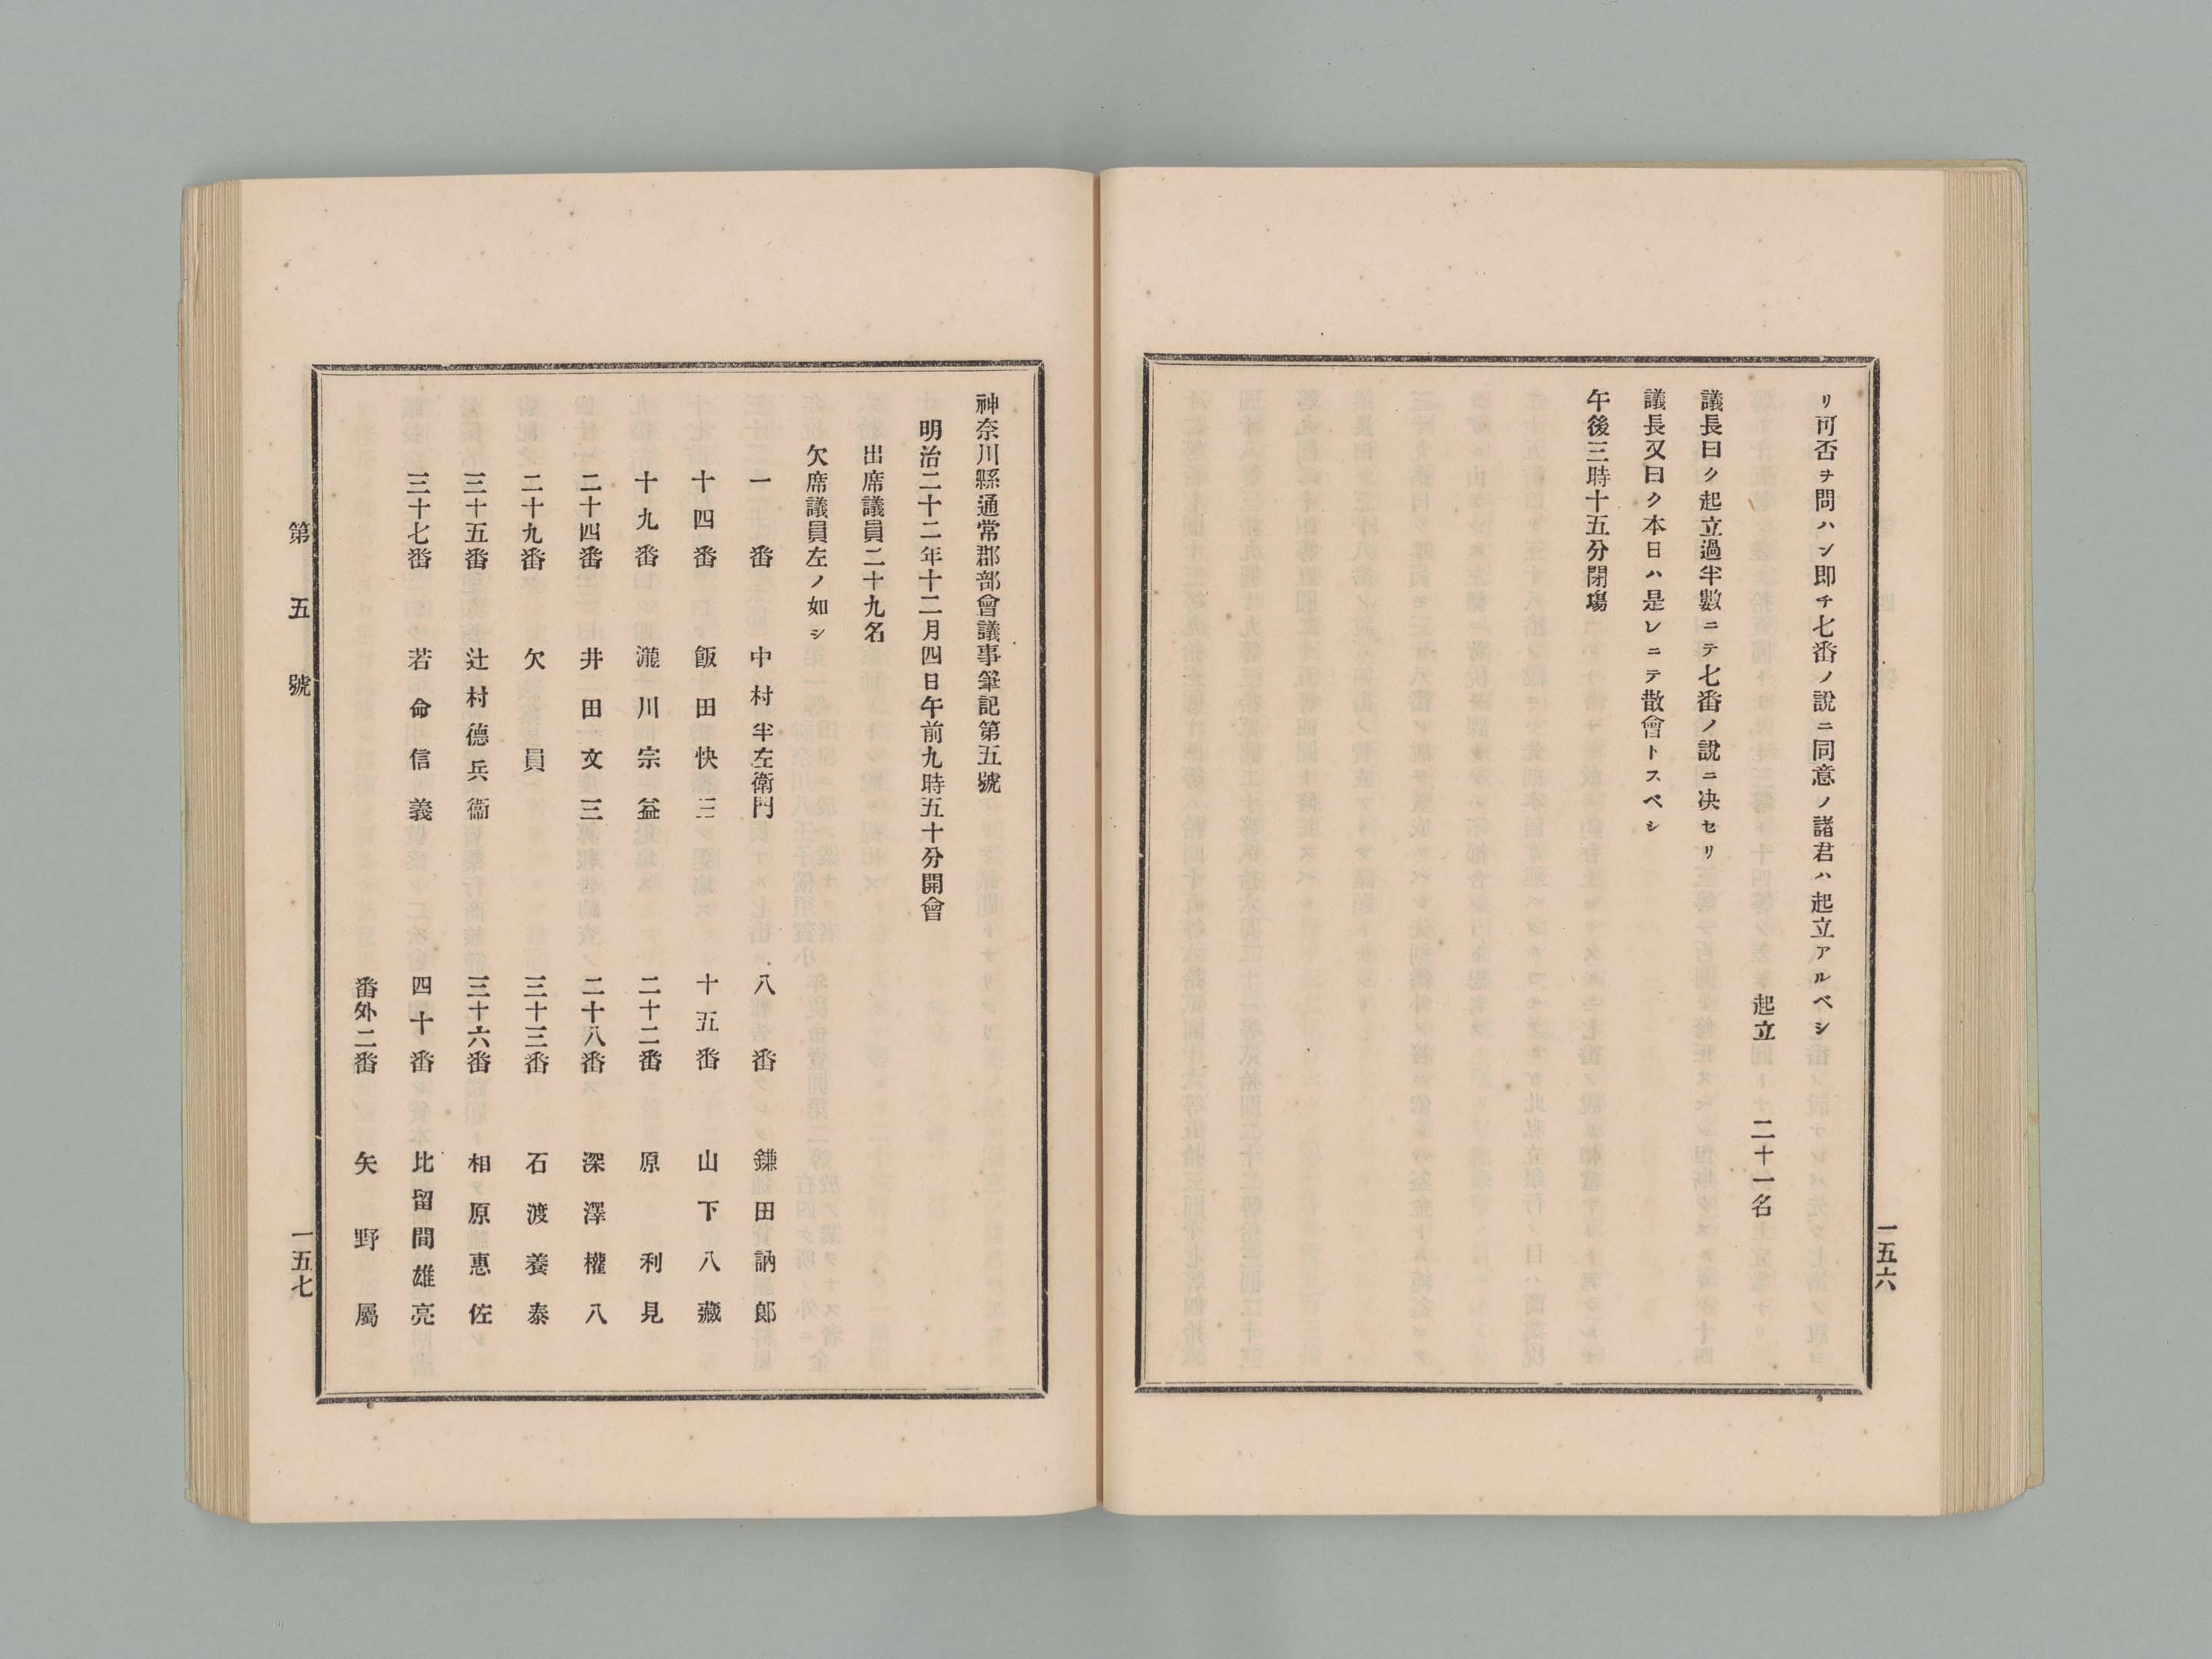 リ可否ヲ問ハン即チ七番ノ說ニ同意ノ諸君ハ起立アルベシ
起立　二十一名
議長曰ク起立過半數ニテ七番ノ說ニ决セリ
議長又曰ク本日ハ是レニテ散會トスベシ
午後三時十五分閉塲
一五六
神奈川縣通常郡部會議事筆記第五號
明治二十二年十二月四日午前九時五十分開會
出席議員二十九名
欠席議員左ノ如シ
一番　中村半左衛門　八番　鎌田訥郎
十四番　飯田快三　十五番　山下八藏
十九番　瀧川宗益　二十二番　原利見
二十四番　井田文三　二十八番　深澤權八
二十九番　欠員　三十三番　石渡養泰
三十五番　辻村德兵衞　三十六番　相原惠佐
三十七番　若命信義　四十番　比留間雄亮
番外二番　矢野屬
第五號
一五七